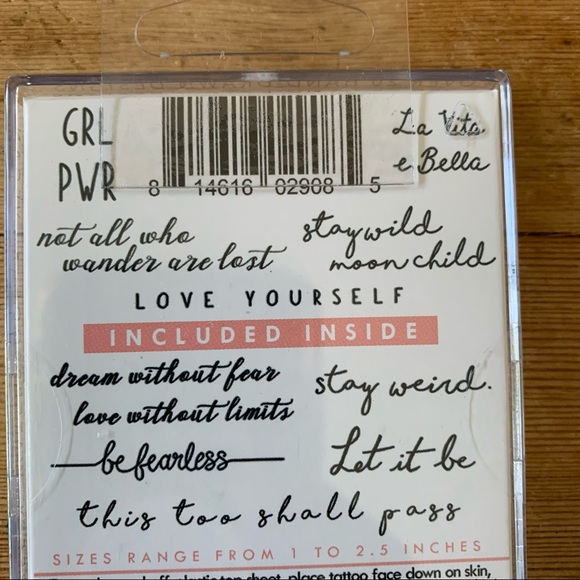 GRL
PWR
8 14616 02908 5
La Vita
e Bella
not all who
wander are lost
stay wild
moon child
LOVE YOURSELF
INCLUDED INSIDE
dream without fear
love without limits
stay weird.
be fearless
Let it be
this too shall pass
SIZES RANGE FROM 1 TO 2.5 INCHES
sheet, place tattoo face down on skin,